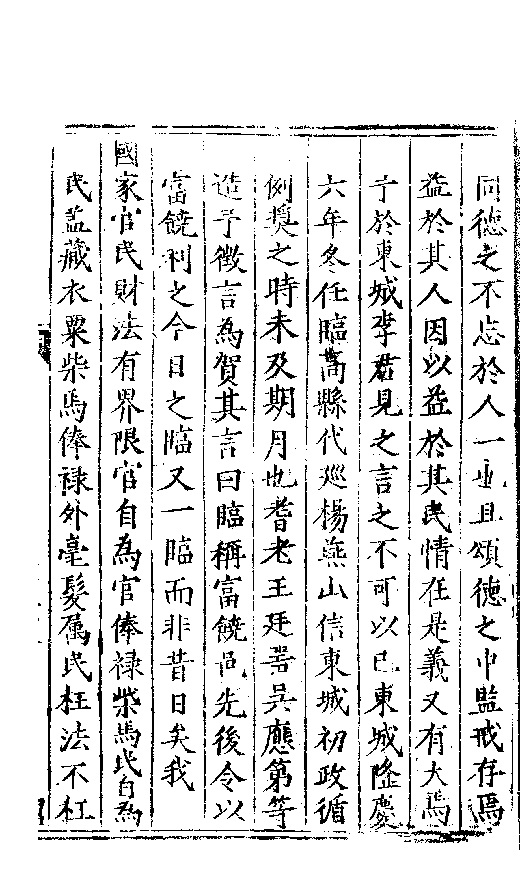 同德之不忘於人一也且頌德之中監戒存焉
益於其人因以益於其民情在是義又有大焉
于於東城李君見之言之不可以已東城隆慶
六年冬任臨高縣代巡楊燕山信東城初政循
例奬之時未及期月也耆老王廷善吴應第等
造予徵言為賀其言曰臨稱富饒邑先後令以
富饒利之今日之臨又一臨而非昔日矣我
國家官民財法有界限官自為官俸祿柴馬民自為
民盖藏衣粟柴馬俸祿外毫髮属民枉法不枉